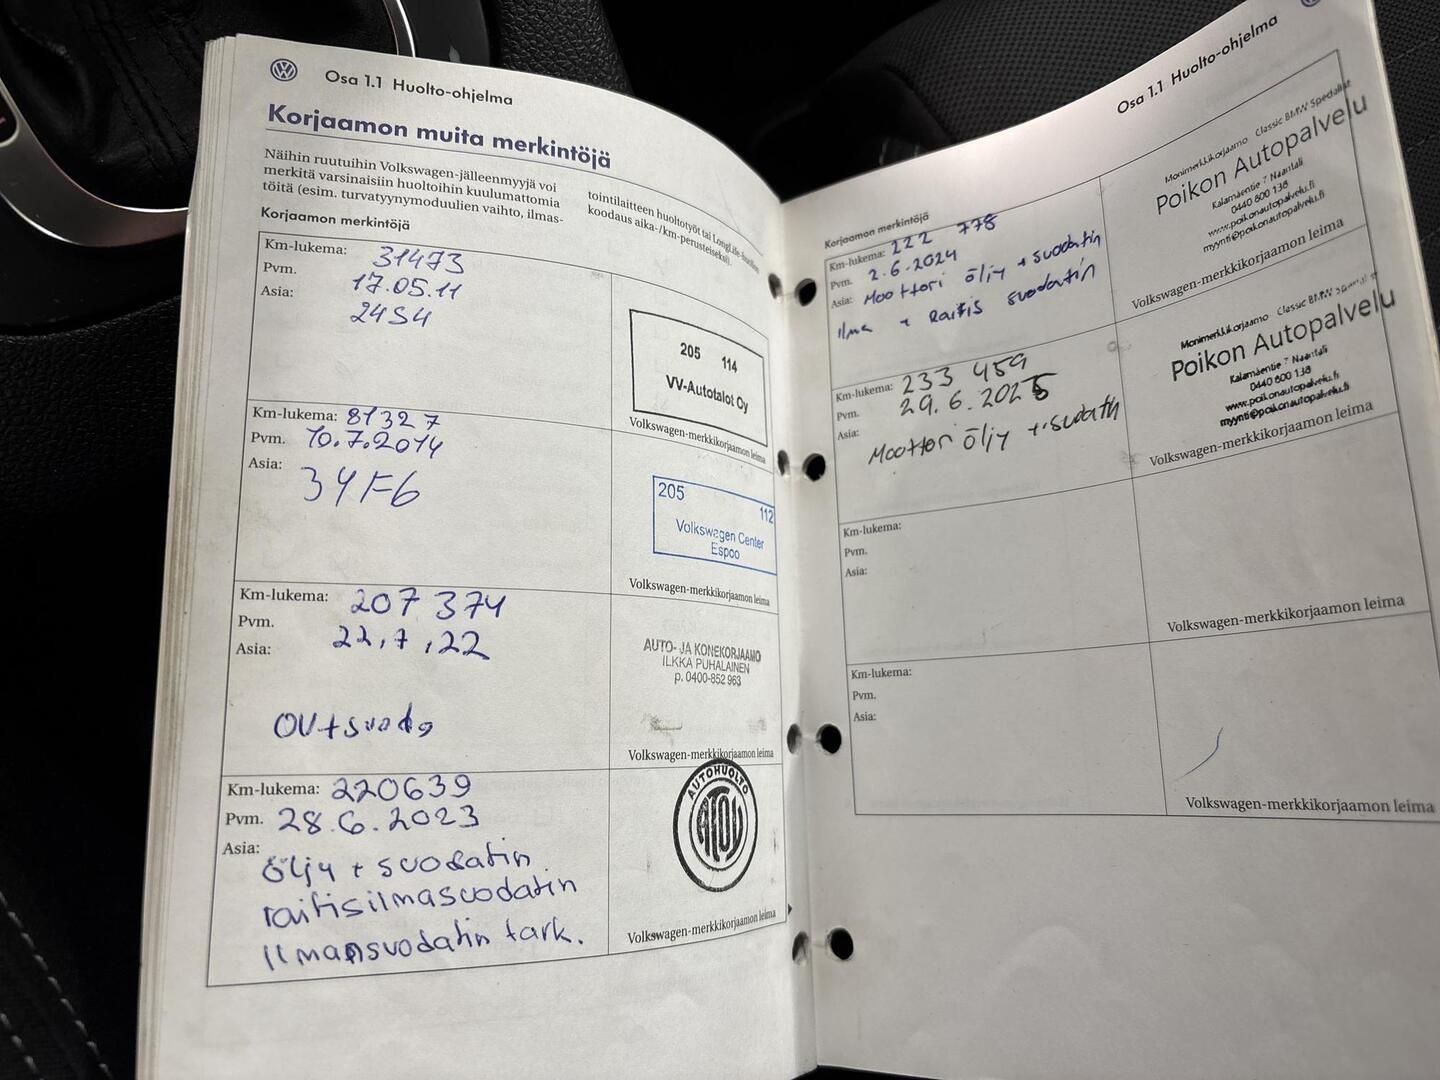 Osa 1.1 Huolto-ohjelma
Korjaamon muita merkintöjä
Näihin ruutuihin Volkswagen-jälleenmyyjä voi
merkitä varsinaisiin huoltoihin kuulumattomia
töitä (esim. turvatyynymoduulien vaihto, ilmas-
tointilaitteen huoltotyöt tai LongLife-huollon
koodaus aika-/km-perusteiseksi).
Korjaamon merkintöjä
Km-lukema: 31473
Pvm. 17.05.11
Asia: 24S4
205 114
VV-Autotalot Oy
Volkswagen-merkkikorjaamon leima
Km-lukema: 81327
Pvm. 10.7.2014
Asia: 34F6
205 112
Volkswagen Center
Espoo
Volkswagen-merkkikorjaamon leima
Km-lukema: 207 374
Pvm. 22,7,22
Asia:
AUTO- JA KONEKORJAAMO
ILKKA PUHALAINEN
p. 0400-852 963
Volkswagen-merkkikorjaamon leima
Km-lukema: 220639
Pvm. 28.6.2023
Asia: öljy + suodatin
raitisilmasuodatin
Ilmansuodatin tark.
AUTOHUOLTO
Volkswagen-merkkikorjaamon leima
Osa 1.1 Huolto-ohjelma
Korjaamon merkintöjä
Km-lukema: 222 778
Pvm. 2.6.2024
Asia: Moottori öljy + suodatin
Ilma + Raitis suodatin
Monimerkkikorjaamo Classic BMW Specialist
Poikon Autopalvelu
Kalamäentie 7 Naantali
0440 800 138
www.poikonautopalvelu.fi
myynti@poikonautopalvelu.fi
Volkswagen-merkkikorjaamon leima
Km-lukema: 233 459
Pvm. 29.6.2025
Asia:
Moottori öljy + suodatin
Monimerkkikorjaamo Classic BMW Specialist
Poikon Autopalvelu
Kalamäentie 7 Naantali
0440 800 138
www.poikonautopalvelu.fi
myynti@poikonautopalvelu.fi
Volkswagen-merkkikorjaamon leima
Km-lukema:
Pvm.
Asia:
Volkswagen-merkkikorjaamon leima
Km-lukema:
Pvm.
Asia:
Volkswagen-merkkikorjaamon leima